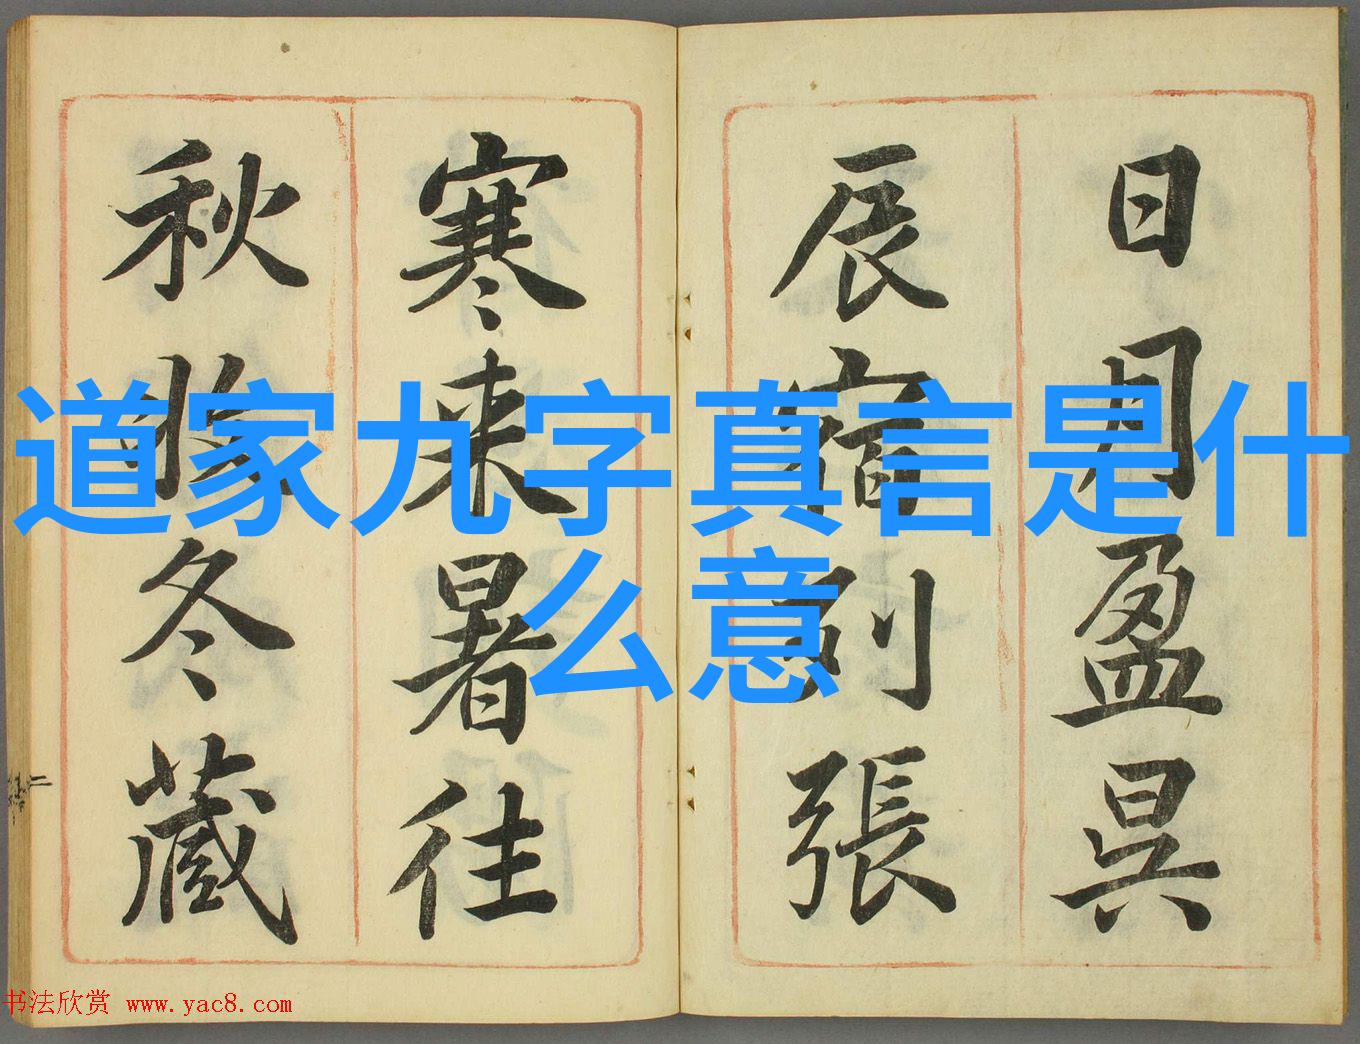 日月盈昃
辰宿列張
寒来暑往
秋收冬藏
道家九字真言是什
么意
书法欣赏 www.yac8.com